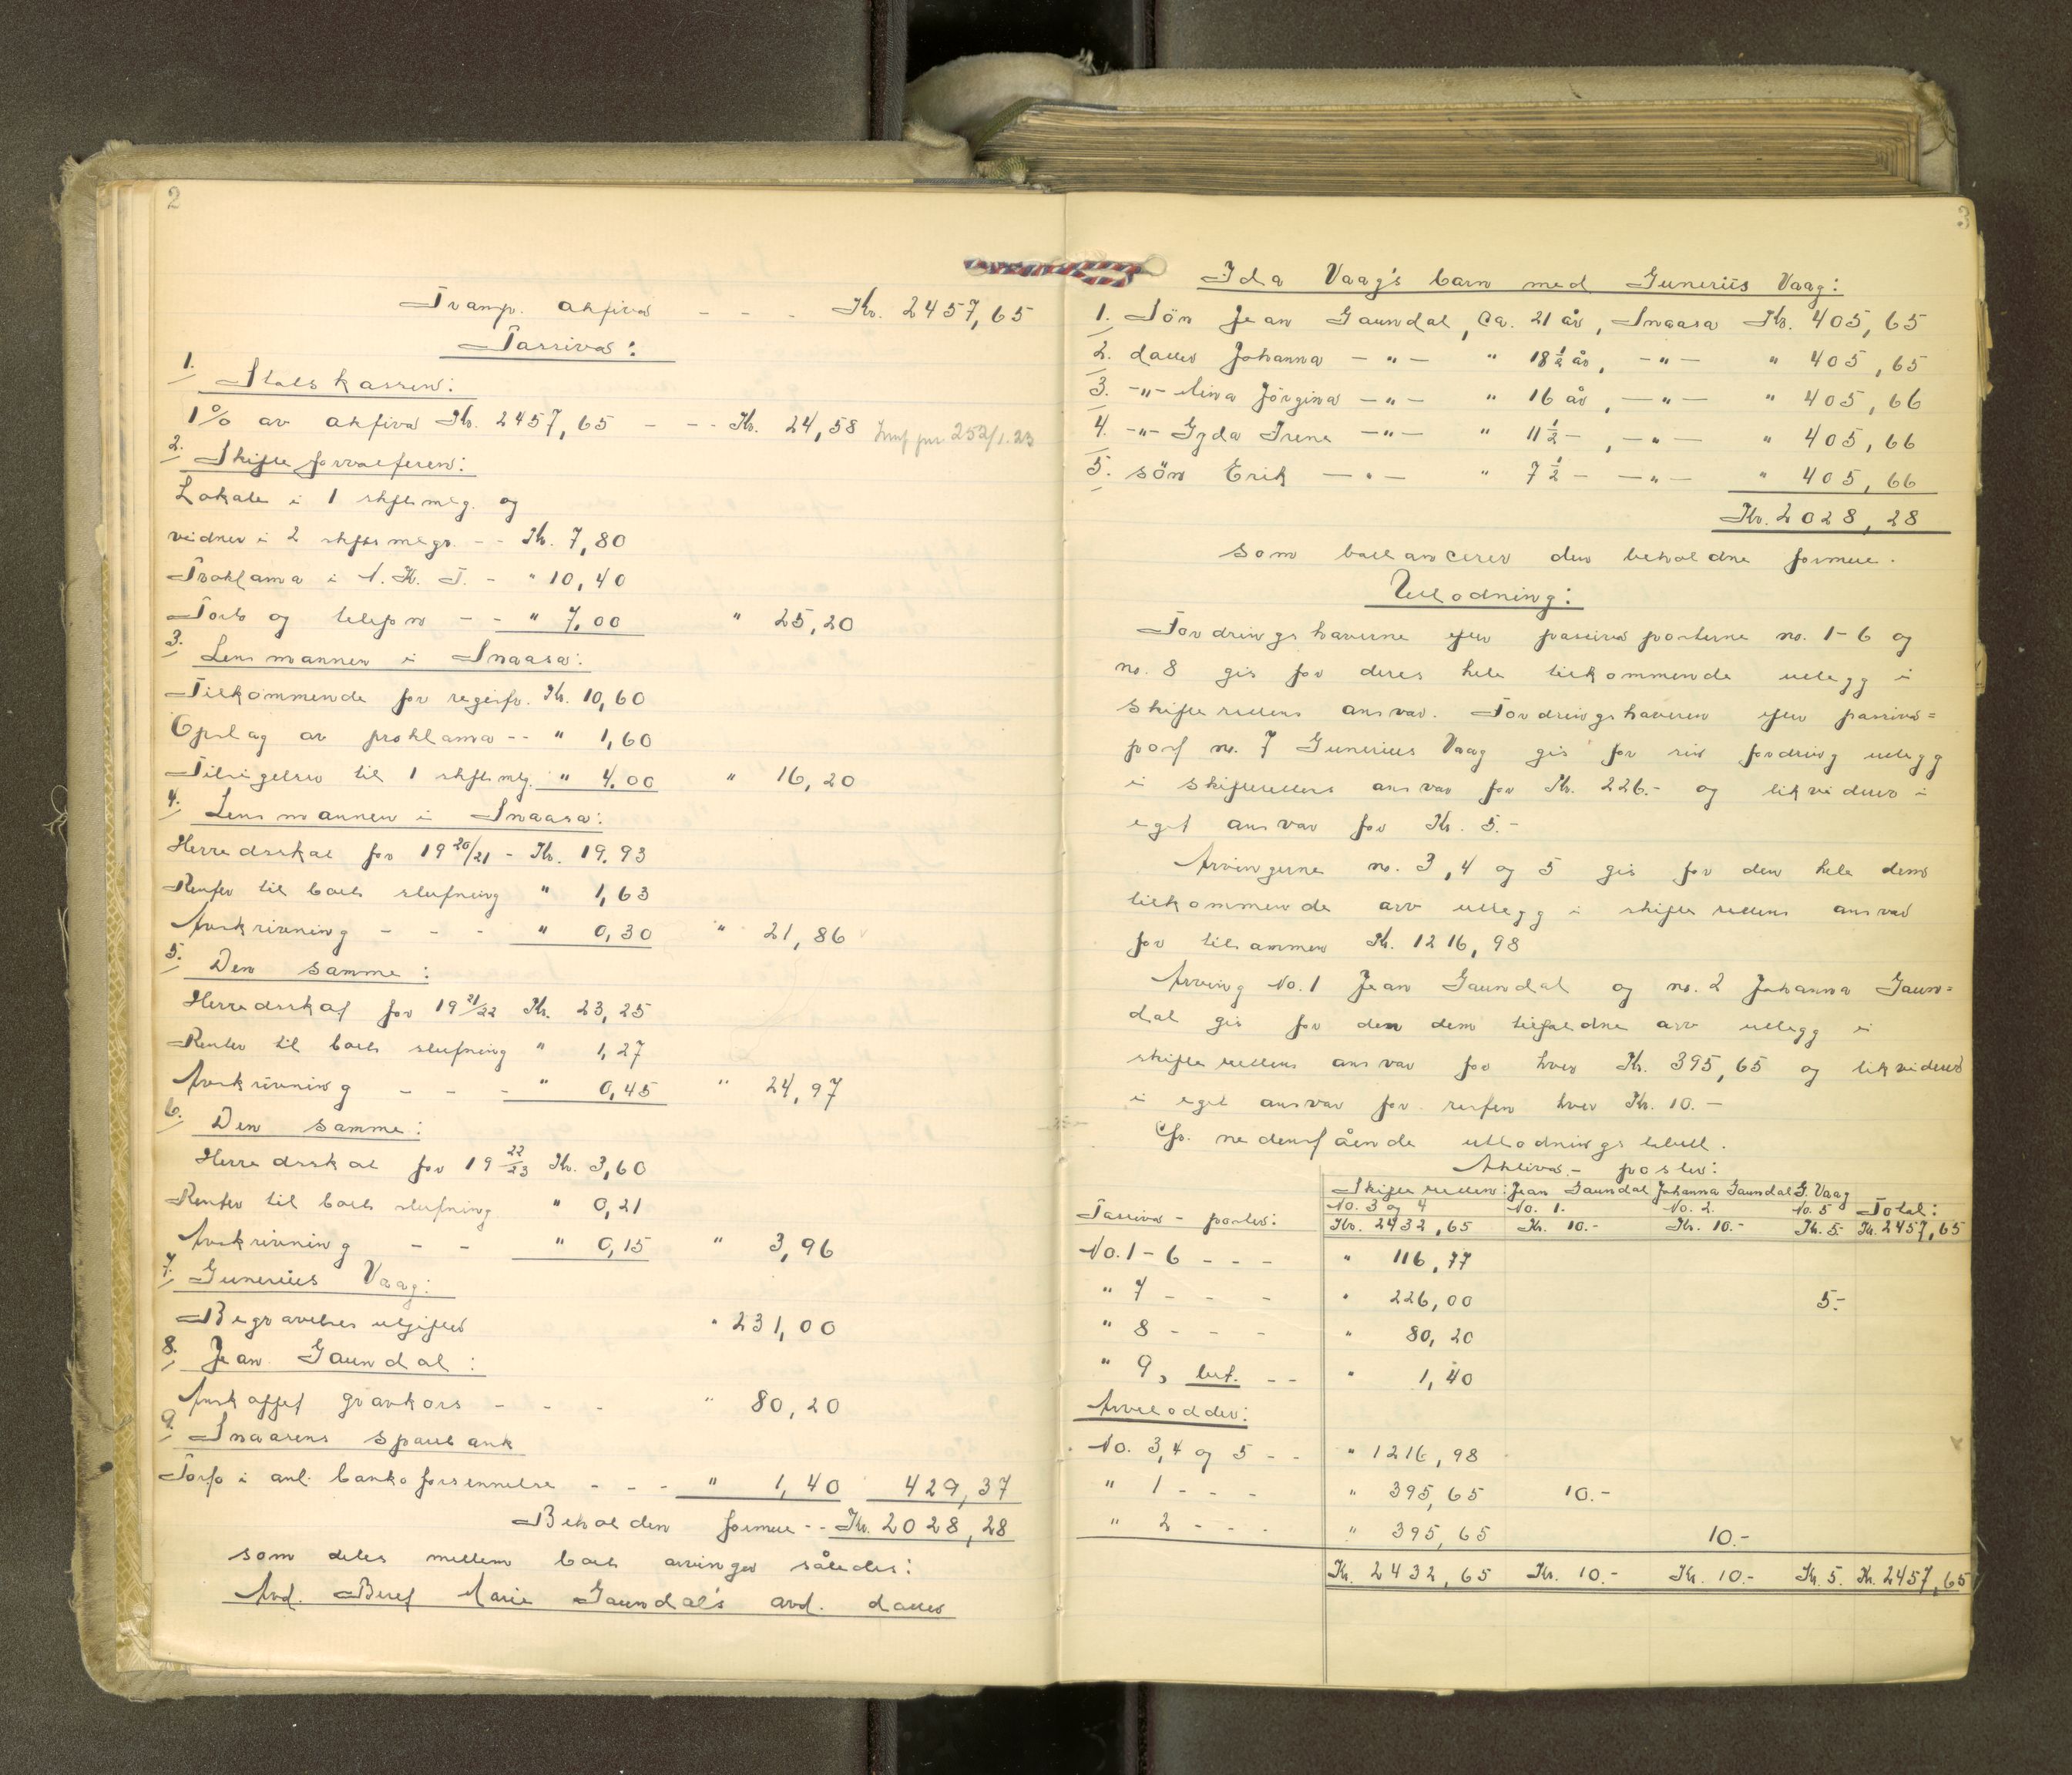 2
Transp. aktiva - - - Kr. 2457,65
Passiva:
1. Statskassen:
1% av aktiva Kr. 2457,65 - - - Kr. 24,58 252/1.23
2. Skifteforvalteren:
Lokale i 1 skiftsmlg. og
vidner i 2 skiftesmlgr. - - Kr. 7,80
Proklama i N. K. T. - " 10,40
Porto og telefon - - " 7,00 " 25,20
3. Lensmannen i Snaasa:
Tilkommende for registr. Kr. 10,60
Opslag av proklama - - " 1,60
Tilsigelser til 1 skiftsmlg. " 4,00 " 16,20
4. Lensmannen i Snaasa:
Herredsskat for 19 20/21 - Kr. 19,93
Renter til boets slutning " 1,63
Avskrivning - - - " 0,30 " 21,86
5. Den samme:
Herredsskat for 19 21/22 Kr. 23,25
Renter til boets slutning " 1,27
Avskrivning - - - " 0,45 " 24,97
6. Den samme:
Herredsskat for 19 22/23 Kr. 3,60
Renter til boets slutning " 0,21
Avskrivning - - " 0,15 " 3,96
7. Gunerius Vaag:
Begravelses utgifter " 231,00
8. Jean Gaundal:
Anskaffet gravkors - - - " 80,20
9. Snaasens sparebank
Porto i anl. banko forsennelse - - - " 1,40 429,37
Beholden formue - - Kr. 2028,28
som deles mellem boets arvinger således:
Avd. Beret Marie Gaundal's avd. datter
3
Ida Vaag's barn med Gunerius Vaag:
1. Sön Jean Gaundal, ca. 21 år, Snaasa Kr. 405,65
2. datter Johanna - " - " 18 1/2 år, - " - " 405,65
3. - " - Nina Jörgina - " - " 16 år, - " - " 405,66
4. - " - Gyda Irene - " - " 11 1/2 -, - " - " 405,66
5. sön Erik - " - " 7 1/2 - - " - " 405,66
Kr. 2028,28
som ballancerer den beholdne formue.
Utlodning:
Fordringshaverne efter passivaposterne no. 1-6 og
no. 8 gis for deres hele tilkommende utlegg i
skifterettens ansvar. Fordringshaveren efter passiva=
post no. 7 Gunerius Vaag gis for sin fordring utlegg
i skifterettens ansvar for Kr. 226.- og likviderer i
eget ansvar for Kr. 5.-
Arvingerne no. 3, 4 og 5 gis for den hele dem
tilkommende arv utlegg i skifterettens ansvar
for tilsammen Kr. 1216,98
Arving No. 1 Jean Gaundal og no. 2 Johanna Gaun=
dal gis for den dem tilfaldne arv utlegg i
skifterettens ansvar for hver Kr. 395,65 og likviderer
i eget ansvar for resten hver Kr. 10.-
Cfr. nedenstående utlodningstabell.
Aktiva - poster:
Skifteretten: Jean Gaundal Johanna Gaundal G. Vaag
Passiva - poster: No. 3 og 4 No. 1. No. 2. No. 5 Total:
Kr. 2432,65 Kr. 10.- Kr. 10.- Kr. 5.- Kr. 2457,65
No. 1-6 - - - " 116,77
" 7 - - - " 226,00 5.-
" 8 - - - " 80,20
" 9, - - " 1,40
Arvelodder:
No. 3,4 og 5 - - " 1216,98
" 1 - - - " 395,65 10.-
" 2 - - - " 395,65 10.-
Kr. 2432,65 Kr. 10.- Kr. 10.- Kr. 5. Kr. 2457,65